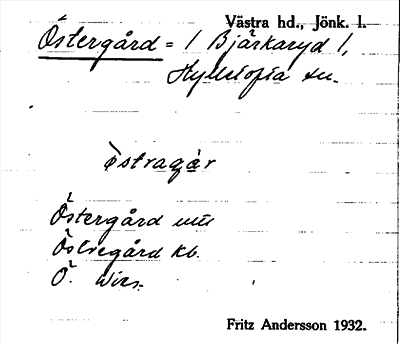 Västra hd., Jönk. l.
Östergård = 1 Bjärkaryd 1,
Hylletofta sn.
östragár
Östergård
Östregård kb.
Ö.
Fritz Andersson 1932.